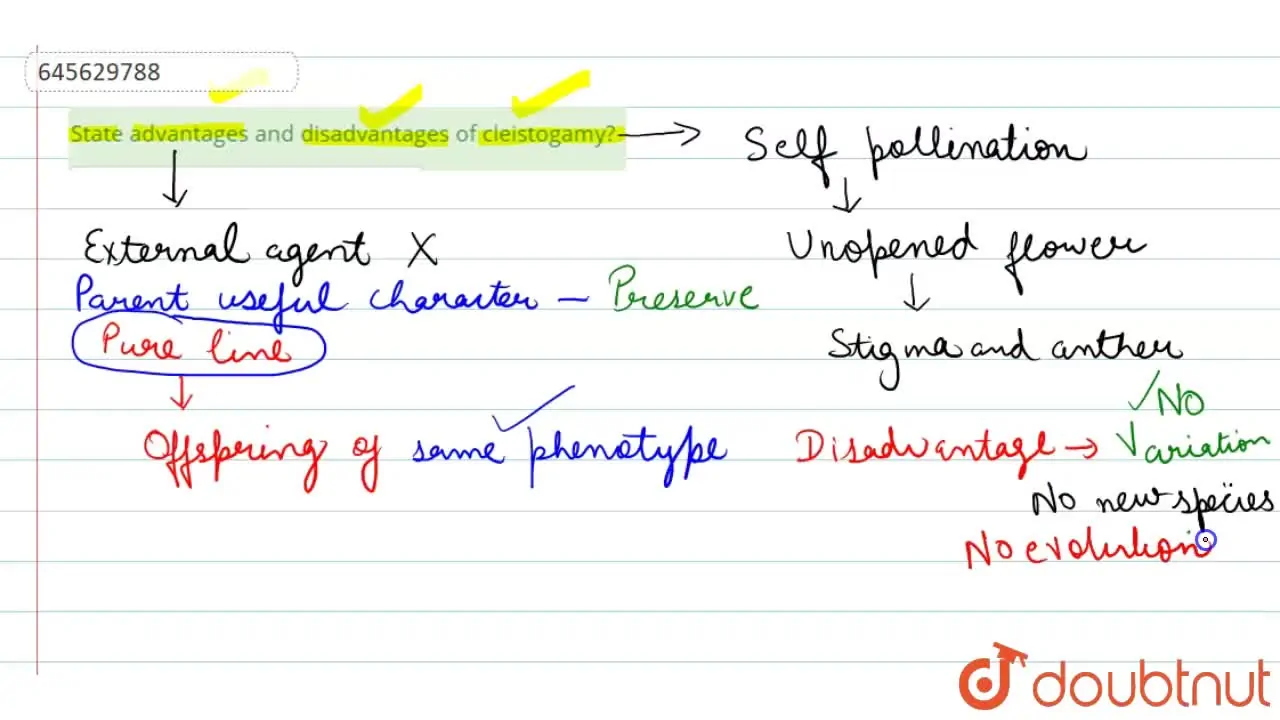 645629788
State advantages and disadvantages of cleistogamy?
Self pollination
Unopened flower
Stigma and anther
External agent X
Parent useful character - Preserve
Pure line
Offspring of same phenotype
Disadvantage → NO
Variation
No new species
No evolution
doubtnut